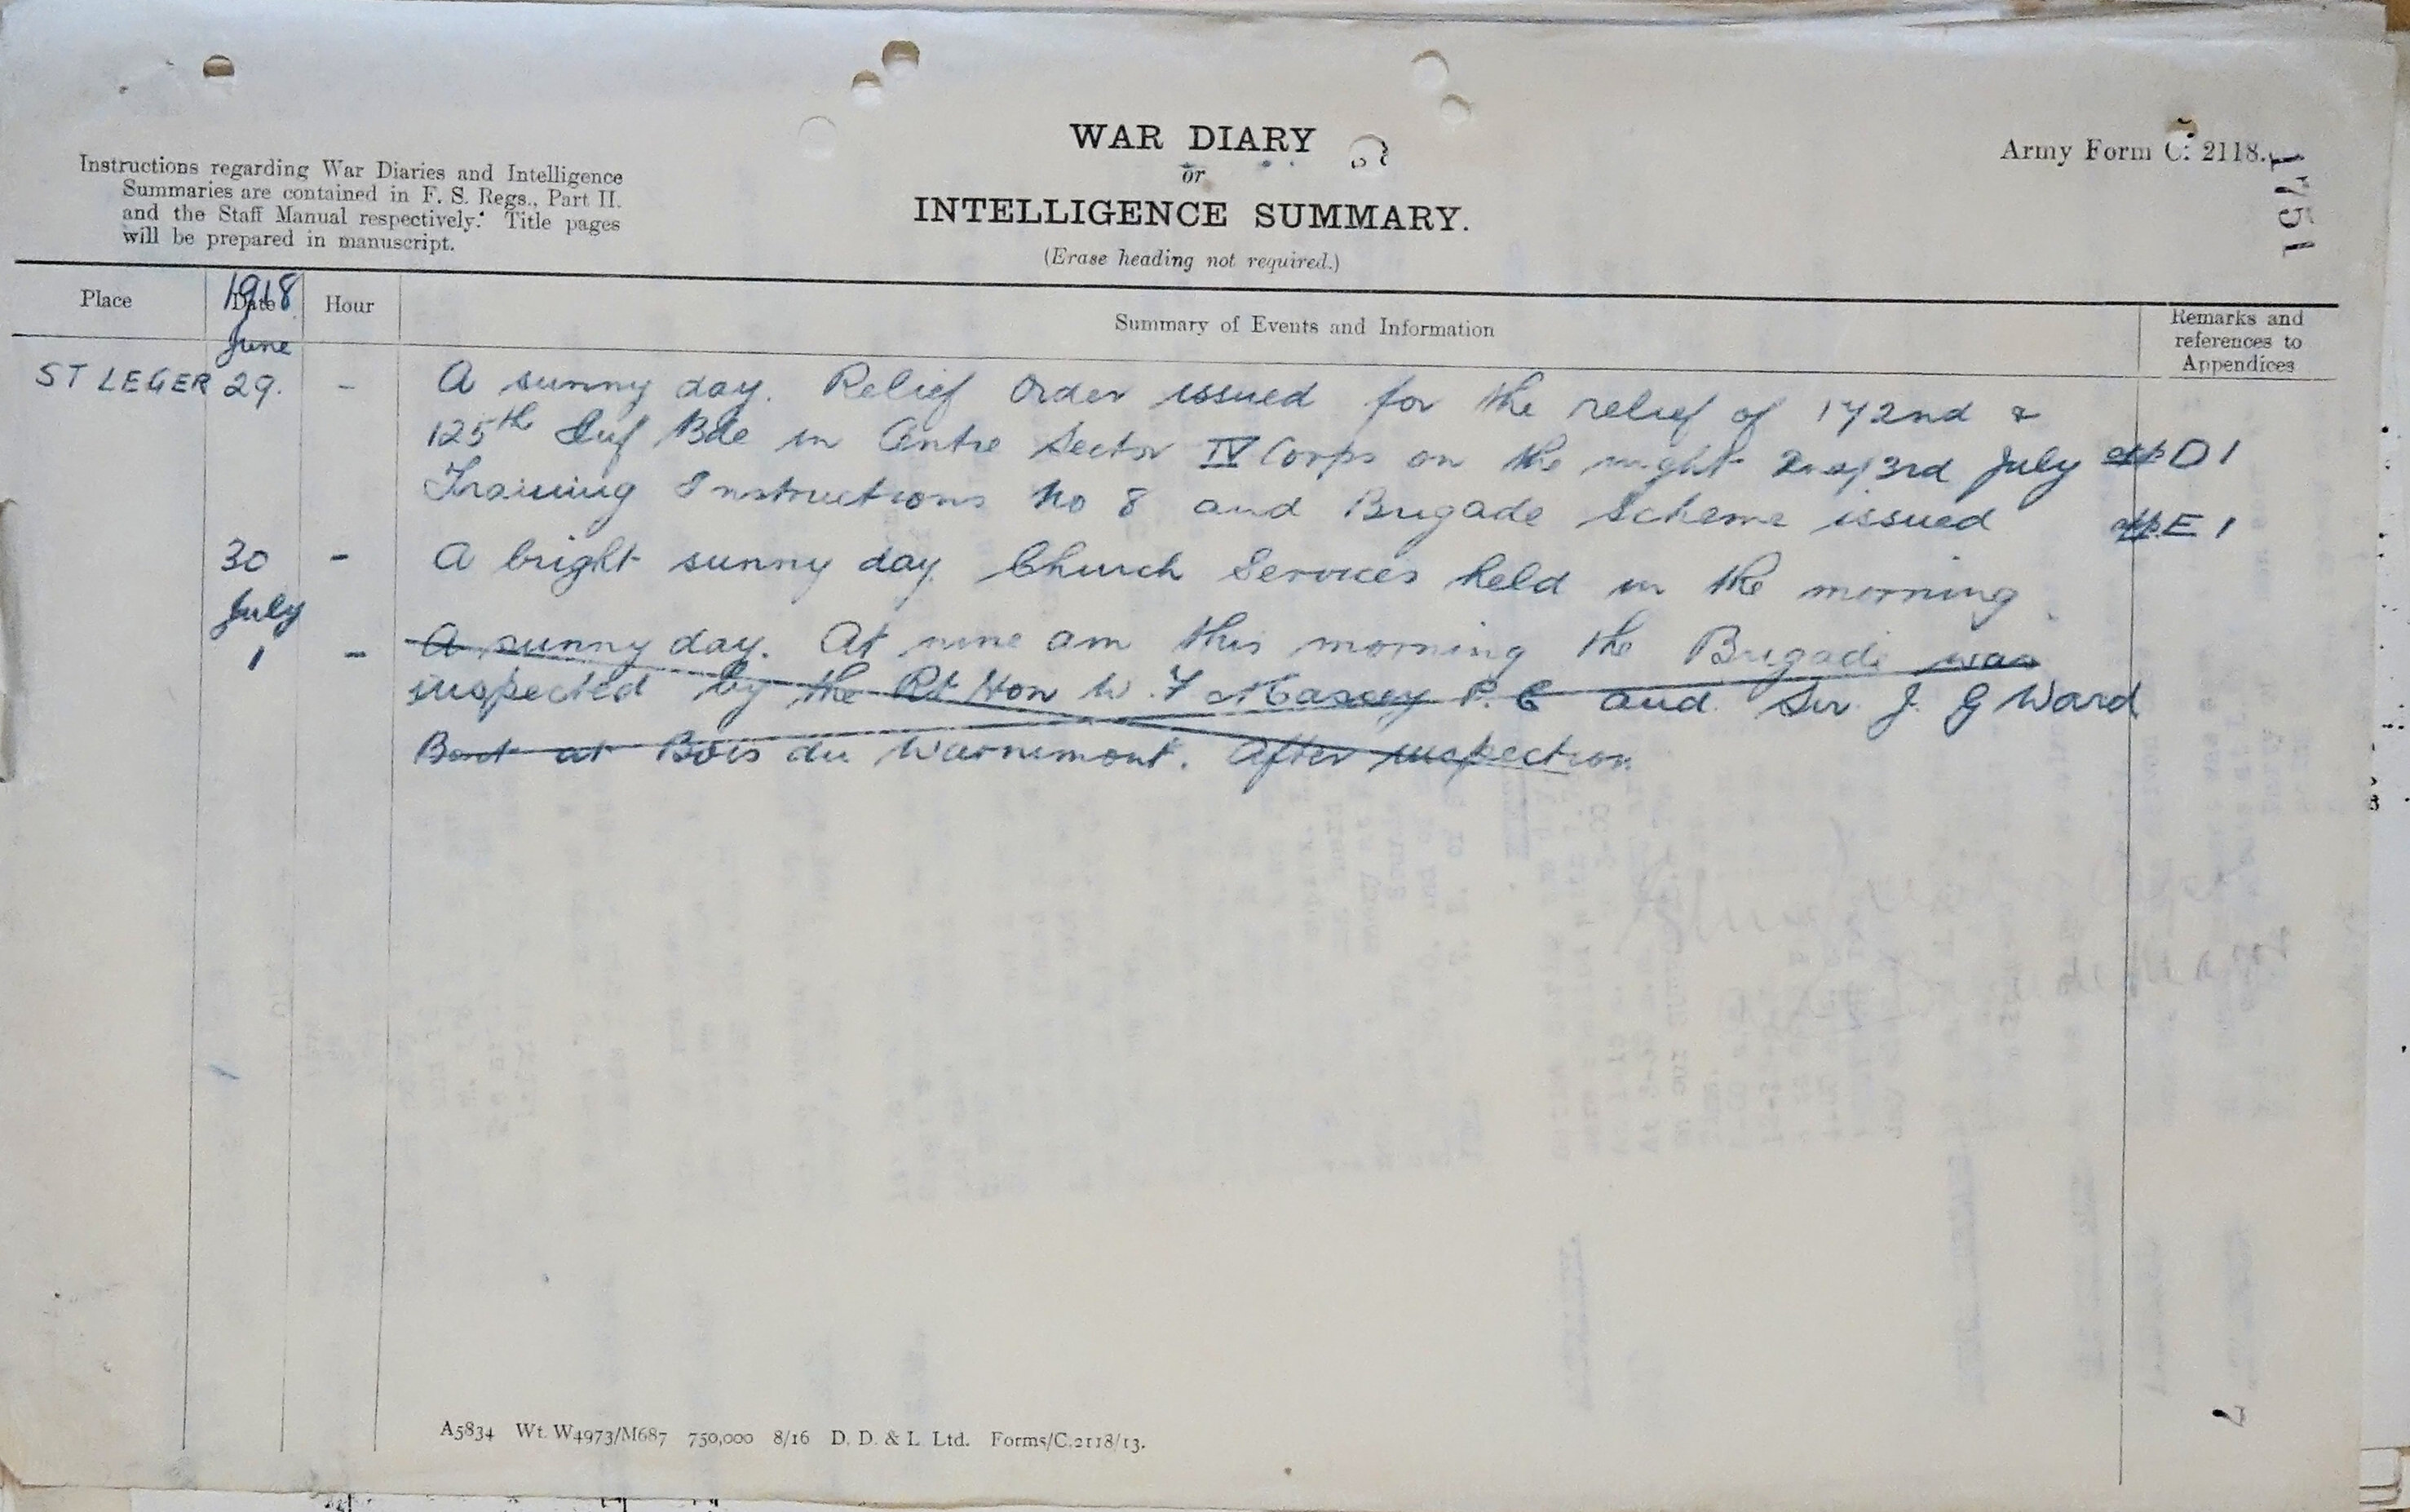 WAR DIARY
or
INTELLIGENCE SUMMARY.
(Erase heading not required.)
Army Form C. 2118.
1751
Instructions regarding War Diaries and Intelligence
Summaries are contained in F. S. Regs., Part II.
and the Staff Manual respectively. Title pages
will be prepared in manuscript.
Place
Date
1918
June
Hour
Summary of Events and Information
Remarks and
references to
Appendices
ST LEGER 29. - A sunny day. Relief Order issued for the relief of 172nd &
125th Inf Bde in Centre Sector IV Corps on the night 2nd/3rd July app D1
Training Instructions No 8 and Brigade Scheme issued app E1
30 - A bright sunny day Church Services held in the morning.
July
1 - A sunny day. At nine am this morning the Brigade was
inspected by the Rt Hon W. F Massey P. C and Sir J. G Ward
Bart at Bois du Warnimont. After inspection
A5834 Wt. W4973/M687 750,000 8/16 D. D. & L. Ltd. Forms/C.2118/13.